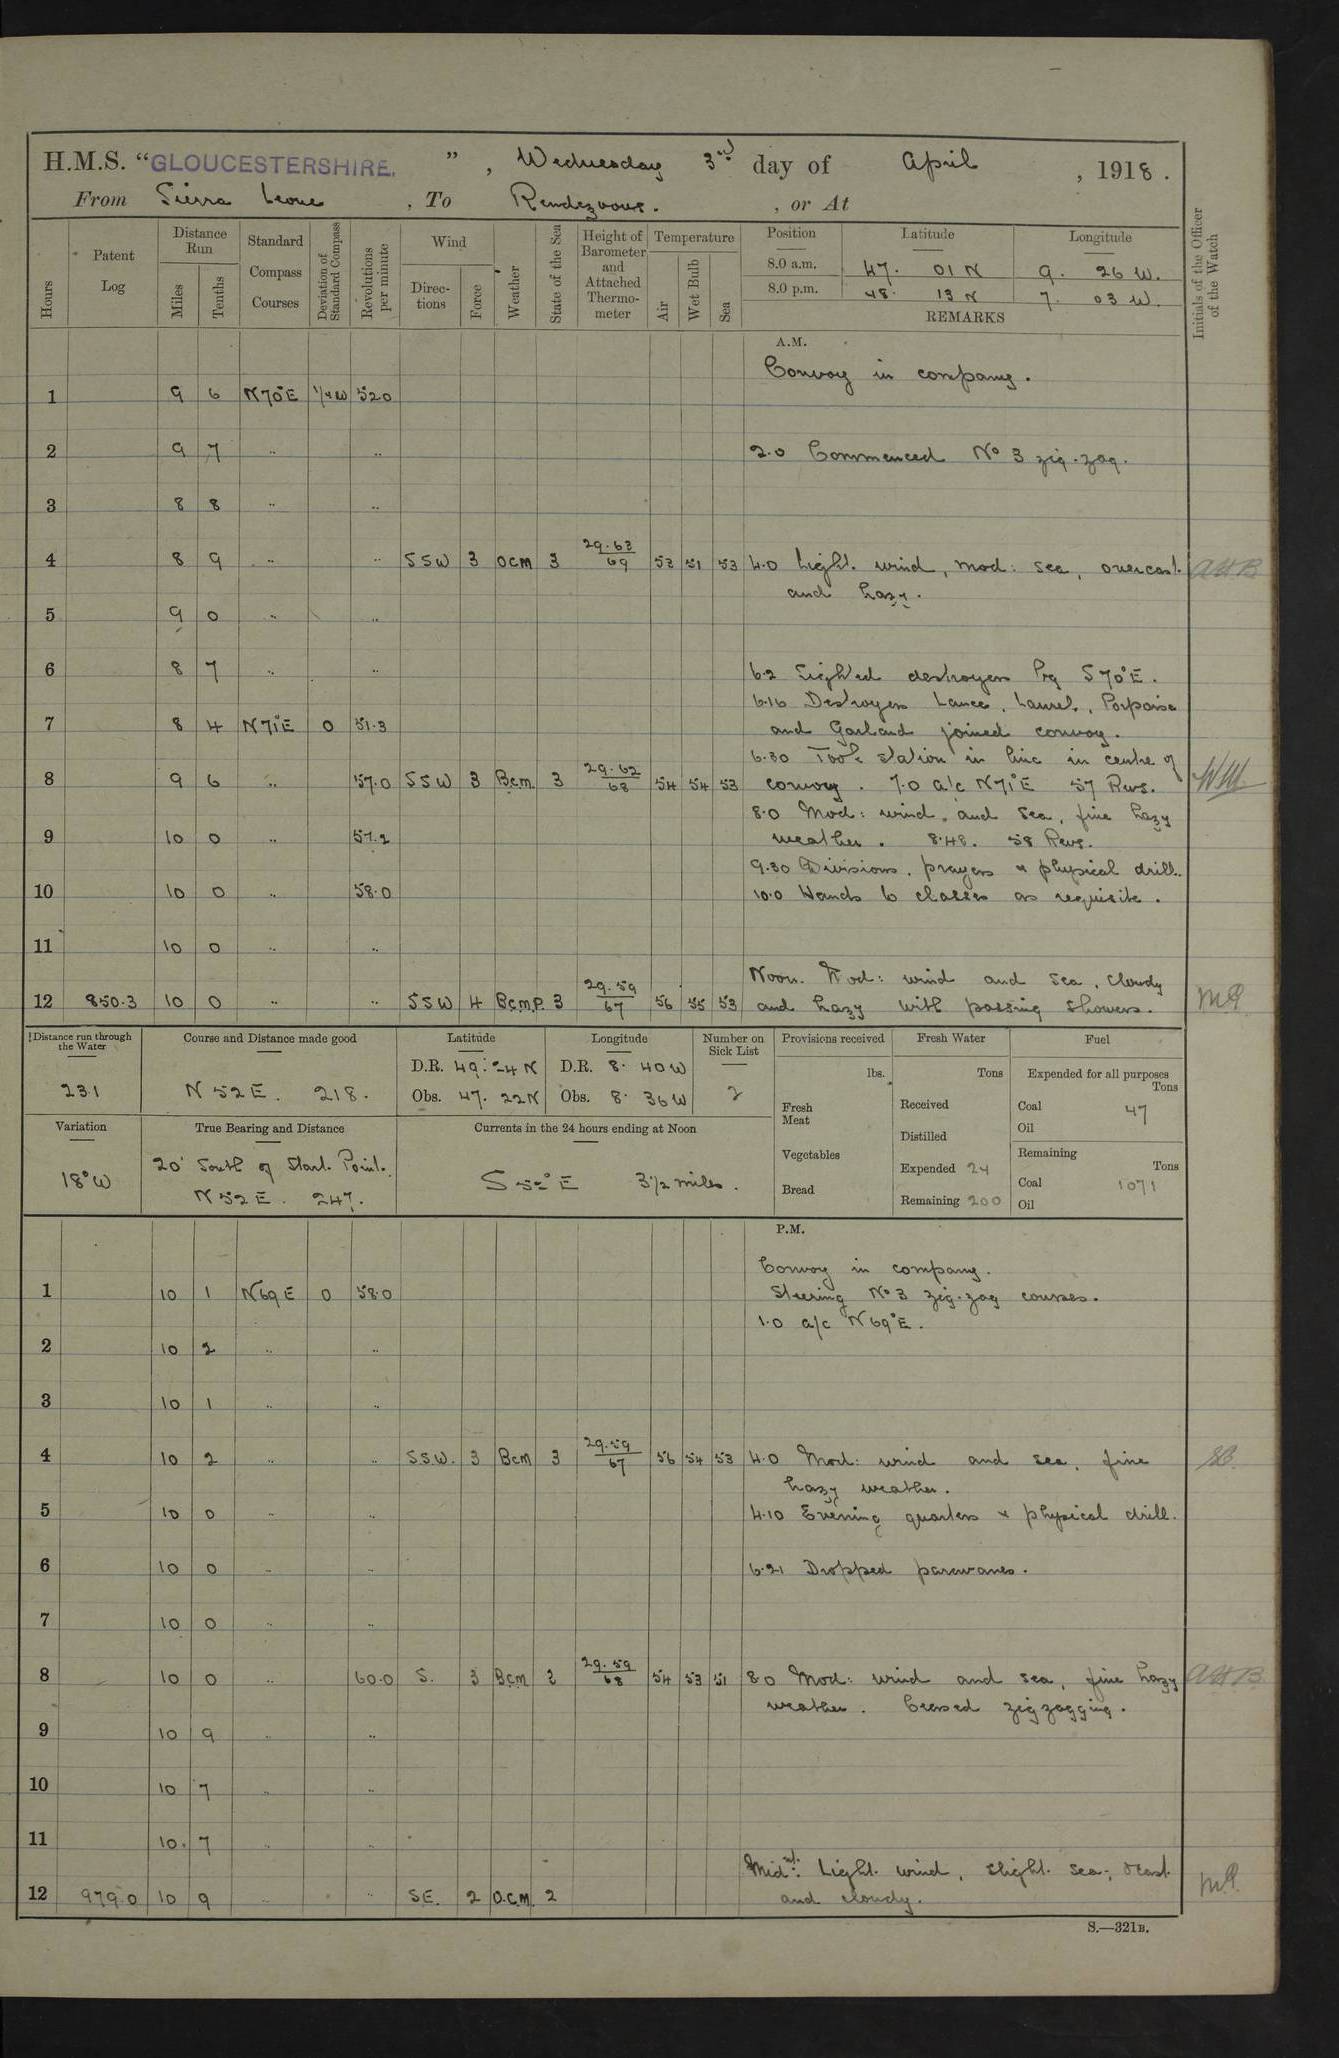 H.M.S. "GLOUCESTERSHIRE.", Wednesday 3rd day of April, 1918.
From Sierra Leone, To Rendezvous., or At
Hours Patent Log Distance Run Miles Tenths Standard Compass Courses Deviation of Standard Compass Revolutions per minute Wind Directions Force Weather State of the Sea Height of Barometer and Attached Thermometer Temperature Air Wet Bulb Sea Position Latitude Longitude Initials of the Officer of the Watch
8.0 a.m. 47. 01 N 9. 26 W.
8.0 p.m. 48. 13 N 7. 03 W.
REMARKS
A.M.
Convoy in company.
1 9 6 N70°E 1/4W 52.0
2 9 7 .. .. 2.0 Commenced No 3 zig-zag.
3 8 8 .. ..
4 8 9 .. .. SSW 3 OCM 3 29.63/69 53 51 53 4.0 Light wind, mod: sea, overcast AHB
and hazy.
5 9 0 .. ..
6 8 7 .. .. 6.2 Sighted destroyers brg S70°E.
6.16 Destroyers Lance, Laurel, Porpoise
7 8 4 N71°E 0 51.3 and Garland joined convoy.
6.30 Took station in line in centre of
8 9 6 .. 57.0 SSW 3 BCM 3 29.62/68 54 54 53 convoy. 7.0 a/c N71°E 57 Revs.
8.0 Mod: wind, and sea, fine hazy
9 10 0 .. 57.2 weather. 8.48. 58 Revs.
9.30 Divisions, prayers & physical drill.
10 10 0 .. 58.0 10.0 Hands to classes as requisite.
11 10 0 .. ..
Noon. Mod: wind and sea, cloudy
12 850.3 10 0 .. .. SSW 4 BCMP. 3 29.59/67 56 55 53 and hazy with passing showers.
Distance run through the Water Course and Distance made good Latitude Longitude Number on Sick List Provisions received Fresh Water Fuel
231 N 52 E. 218. D.R. 49. 24 N D.R. 8. 40 W 2 lbs. Tons Expended for all purposes Tons
Obs. 47. 22 N Obs. 8. 36 W Fresh Meat Received Coal 47
Oil
Variation True Bearing and Distance Currents in the 24 hours ending at Noon Distilled
18°W 20' South of Start Point. S 52° E 3½ miles. Vegetables Expended 24 Remaining Tons
N 52 E. 247. Bread Remaining 200 Coal 1071
Oil
P.M.
Convoy in company.
1 10 1 N69E 0 58.0 Steering No 3 zig-zag courses.
1.0 a/c N69°E.
2 10 2 .. ..
3 10 1 .. ..
4 10 2 .. .. SSW. 3 BCM 3 29.59/67 56 54 53 4.0 Mod: wind and sea, fine
hazy weather.
5 10 0 .. .. 4.10 Evening quarters & physical drill.
6 10 0 .. .. 6.21 Dropped paravanes.
7 10 0 .. ..
8 10 0 .. 60.0 S. 3 BCM 2 29.59/68 54 53 51 8.0 Mod: wind and sea, fine hazy AHB
weather. Ceased zigzagging.
9 10 9 .. ..
10 10 7 .. ..
11 10. 7 .. ..
Midnt: Light wind, slight sea, o'cast
12 979.0 10 9 .. .. SE. 2 O.C.M. 2 and cloudy.
S.—321B.